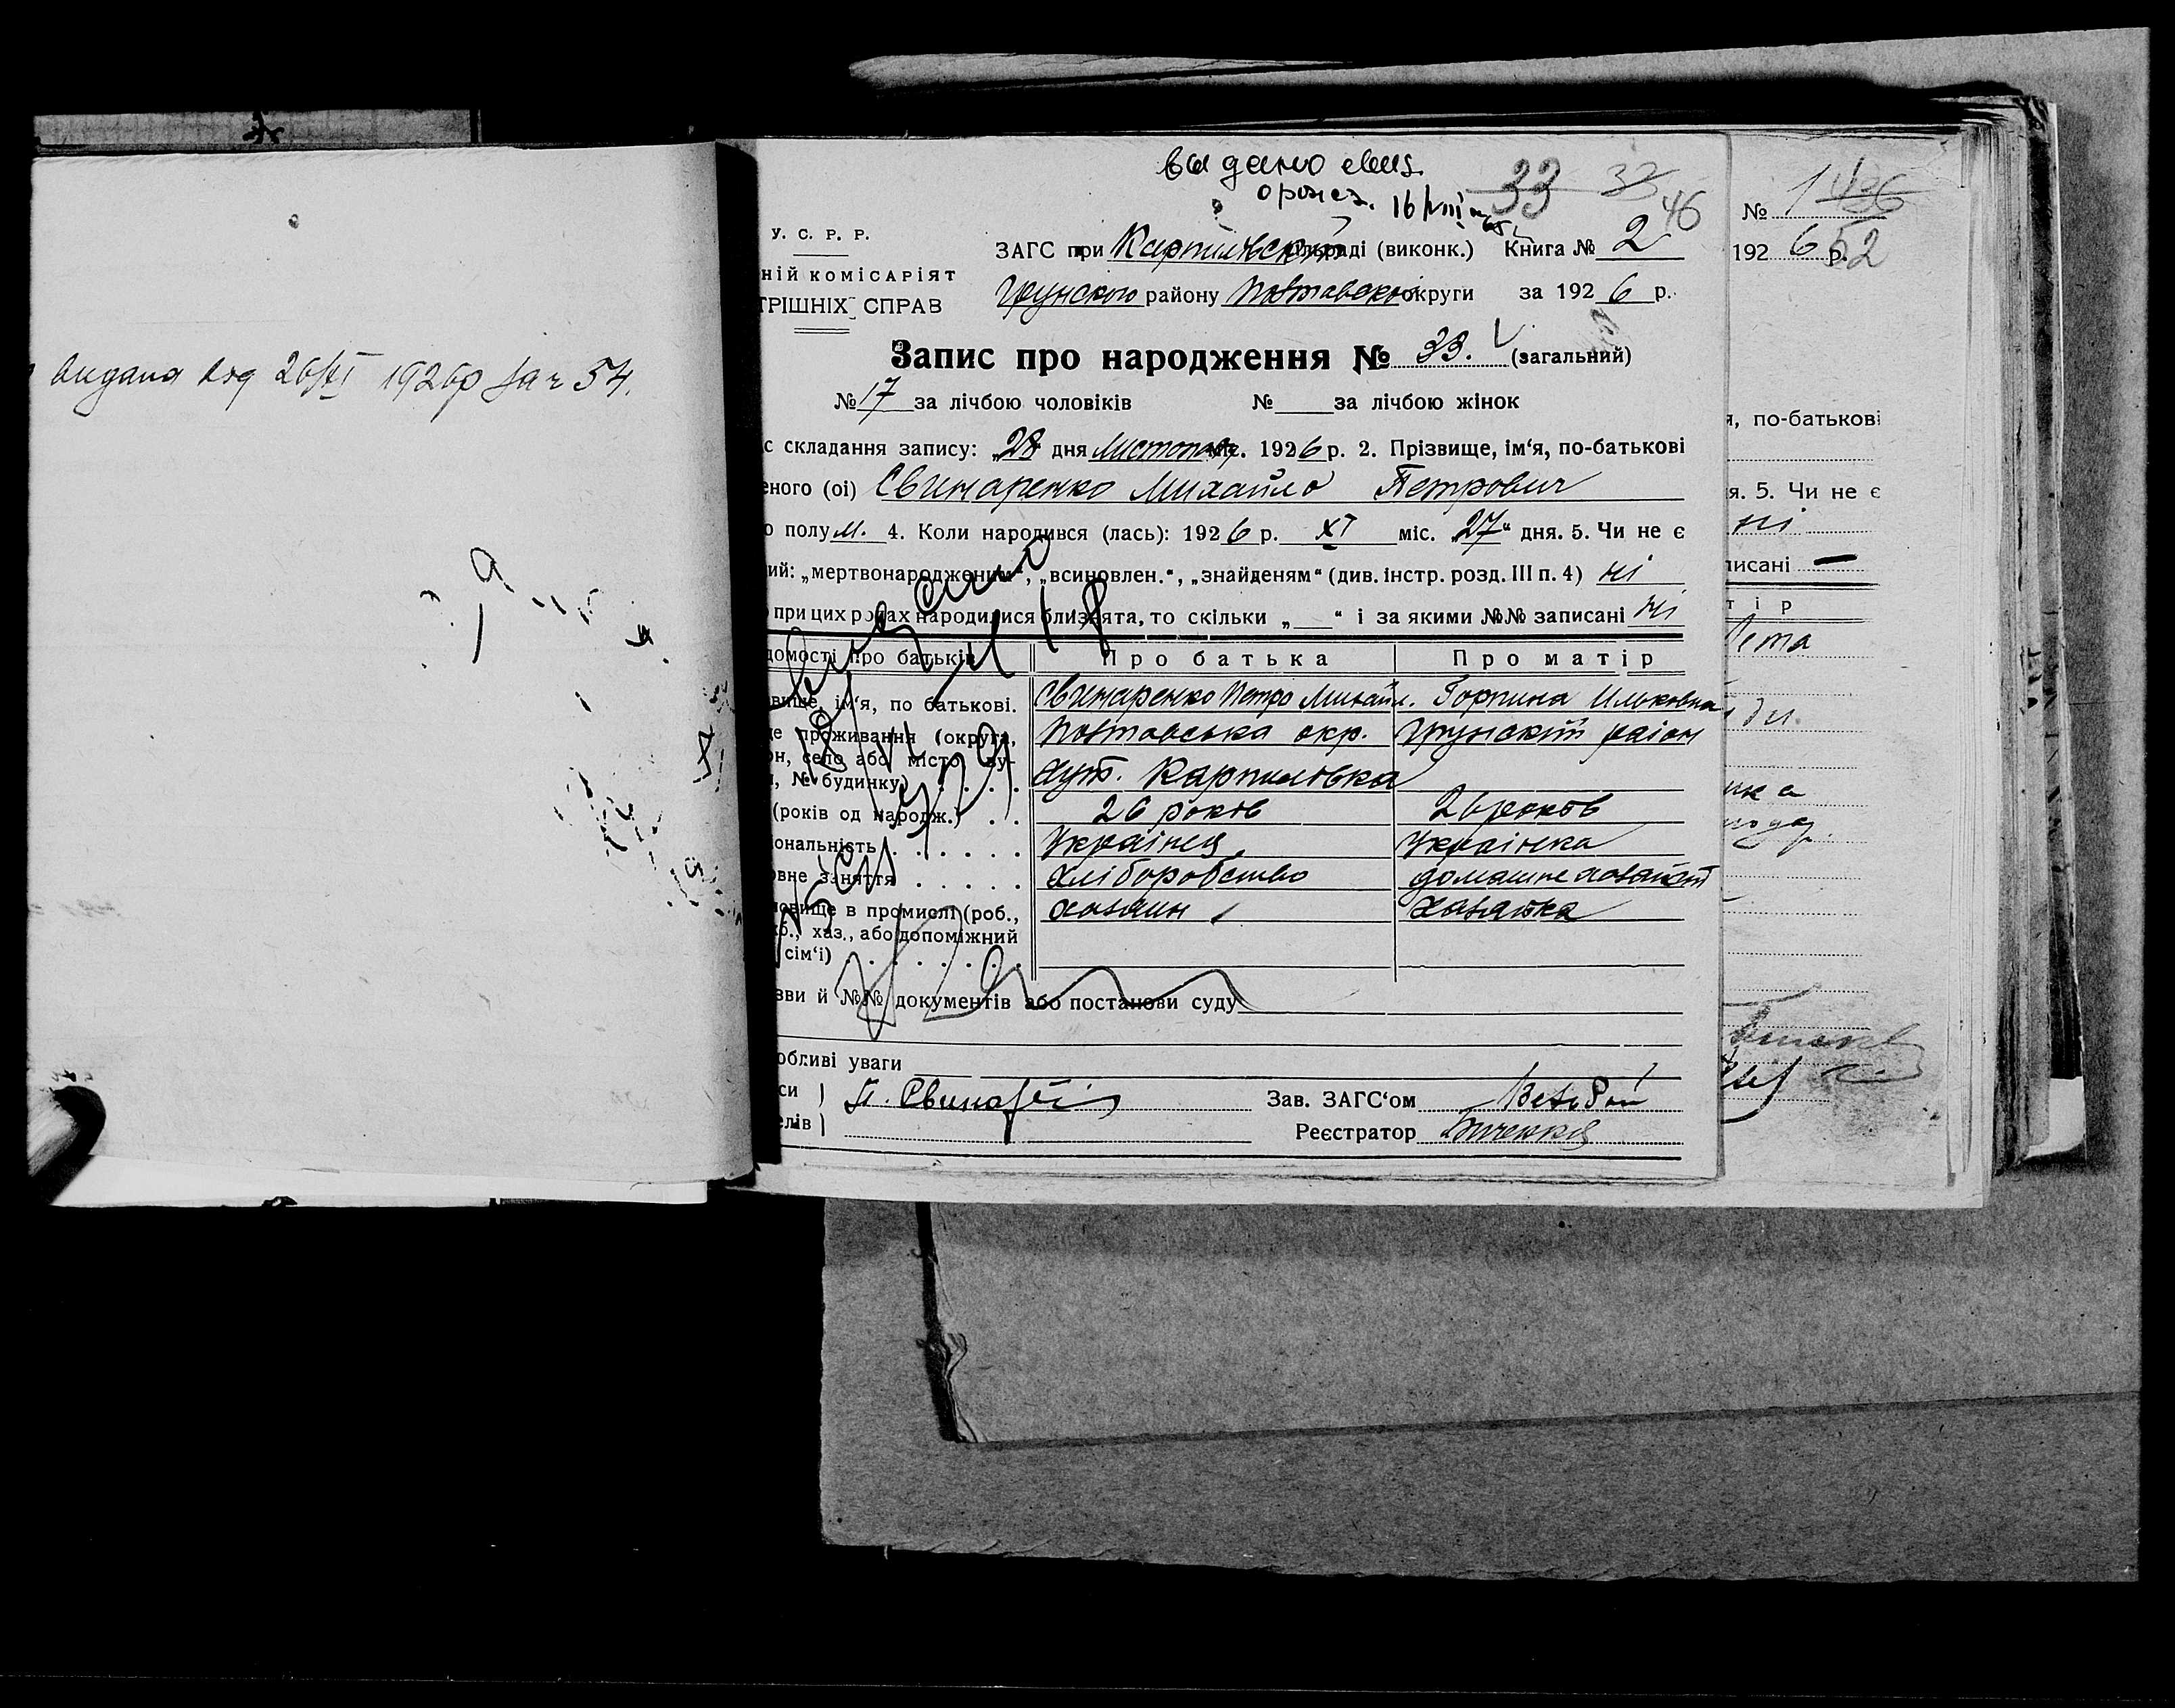 видана від 26/XI 1926р за № 54.
выдано свид.
о рожд. 16/VIII
33
46
У. С. Р. Р.
ній комісаріят
трішніх справ
ЗАГС при Карпилівській сільраді (виконк.) Книга № 2
Грунского району Полтавської округи за 192 6 р.
Запис про народження № 33. (загальний)
№ 17 за лічбою чоловіків № за лічбою жінок
с складання запису: „28 дня Листопада міс. 1926 р. 2. Прізвище, ім‘я, по-батькові
еного (ої) Свинаренко Михайло Петрович
о полу м. 4. Коли народився (лась): 192 6 р. XI міс. „27“ дня. 5. Чи не є
ий: „мертвонародженим“, „всиновлен.“, „знайденям“ (див. інстр. розд. III п. 4) ні
при цих родах народилися близнята, то скільки „ “ і за якими №№ записані ні
домості про батьків Про батька Про матір
вище, ім‘я, по батькові. Свинаренко Петро Михайл. Горпина Ильковна
це проживання (округа, Полтавська окр. Грунский район
он, село або місто, ву-
, № будинку) . . . . хут. Карпилівка
(років од народж.) . . 26 років 26 років
ональність . . . . . . Українец Українка
овне заняття . . . . . Хліборобство домашне хозяйст
овище в промислі (роб., хозяин хозяйка
б., хаз., або допоміжний
сім‘ї) . . . . . . .
зви й №№ документів або постанови суду
обливі уваги
си
елів
П. Свинар
Зав. ЗАГС‘ом
Реєстратор
№ 1
192 6 р.
52
я, по-батькові
я. 5. Чи не є
ні
писані —
тір